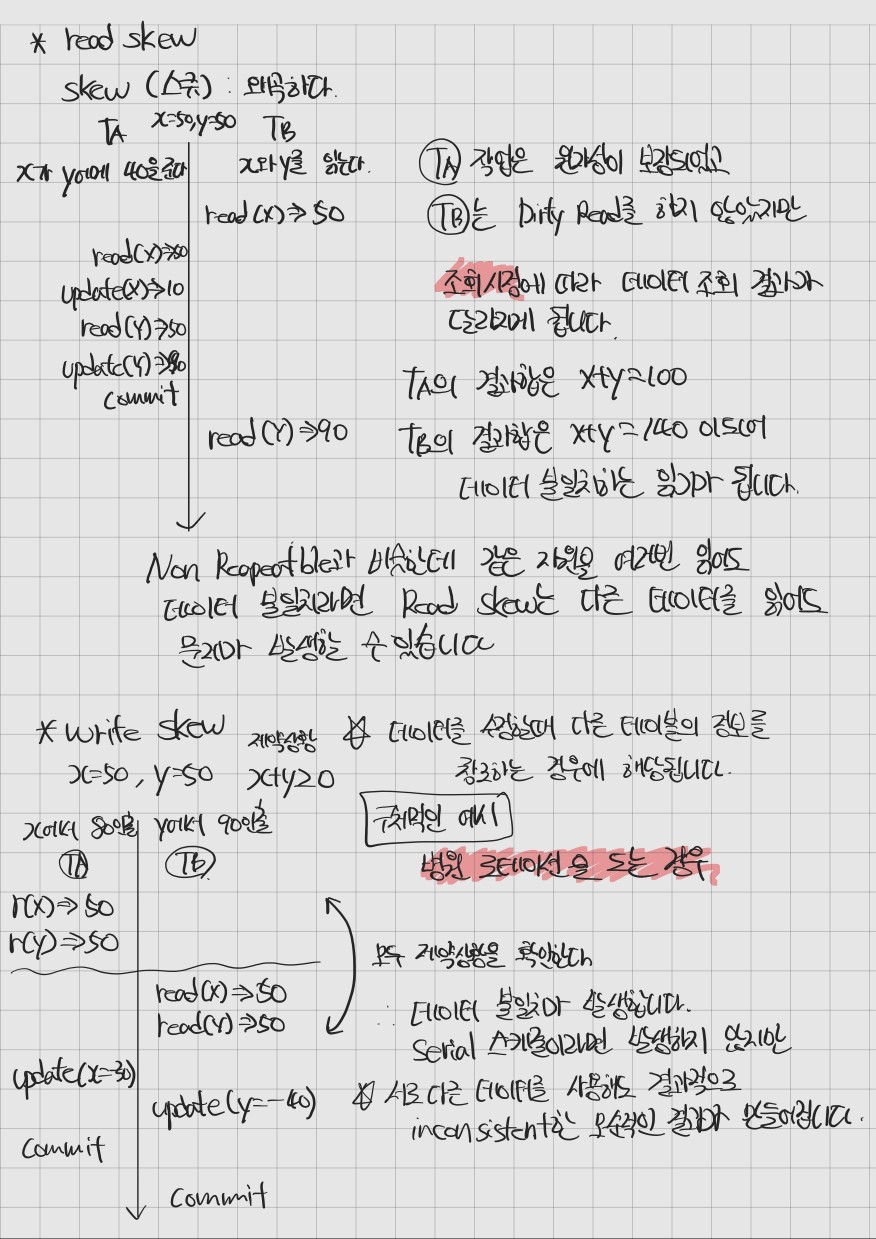 * read skew
skew (스큐) : 왜곡하다.
TA x=50, y=50 TB
x가 y에게 40을 준다 x와 y를 읽는다.
TA 작업은 원자성이 보장되었고
read(x)⇒50
TB는 Dirty Read를 하지 않았지만
read(x)⇒50
update(x)⇒10
조회시점에 따라 데이터 조회 결과가
달라지게 됩니다.
read(Y)⇒50
update(Y)⇒90
commit
TA의 결과합은 x+y=100
read(Y)⇒90
TB의 결과합은 x+y=140 이되어
데이터 불일치하는 읽기가 됩니다.
Non Reapeatble과 비슷한데 같은 자원을 여러번 읽어도
데이터 불일치라면 Read skew는 다른 데이터를 읽어도
문제가 발생할 수 있습니다
* write skew 제약상황 ☆ 데이터를 수정할때 다른 테이블의 정보를
x=50, y=50 x+y≥0
참고하는 경우에 해당됩니다.
x에서 80인출 y에서 90인출
구체적인 예시
TA TB
병원 로테이션을 도는 경우
r(x)⇒50
r(y)⇒50
모두 제약상황을 확인한다
read(x)⇒50
read(Y)⇒50
∴ 데이터 불일치가 발생합니다.
Serial 스케줄이라면 발생하지 않지만
update(x=-30)
update(y=-40)
☆ 서로 다른 데이터를 사용해도 결과적으로
inconsistent한 모순적인 결과가 만들어집니다.
commit
commit